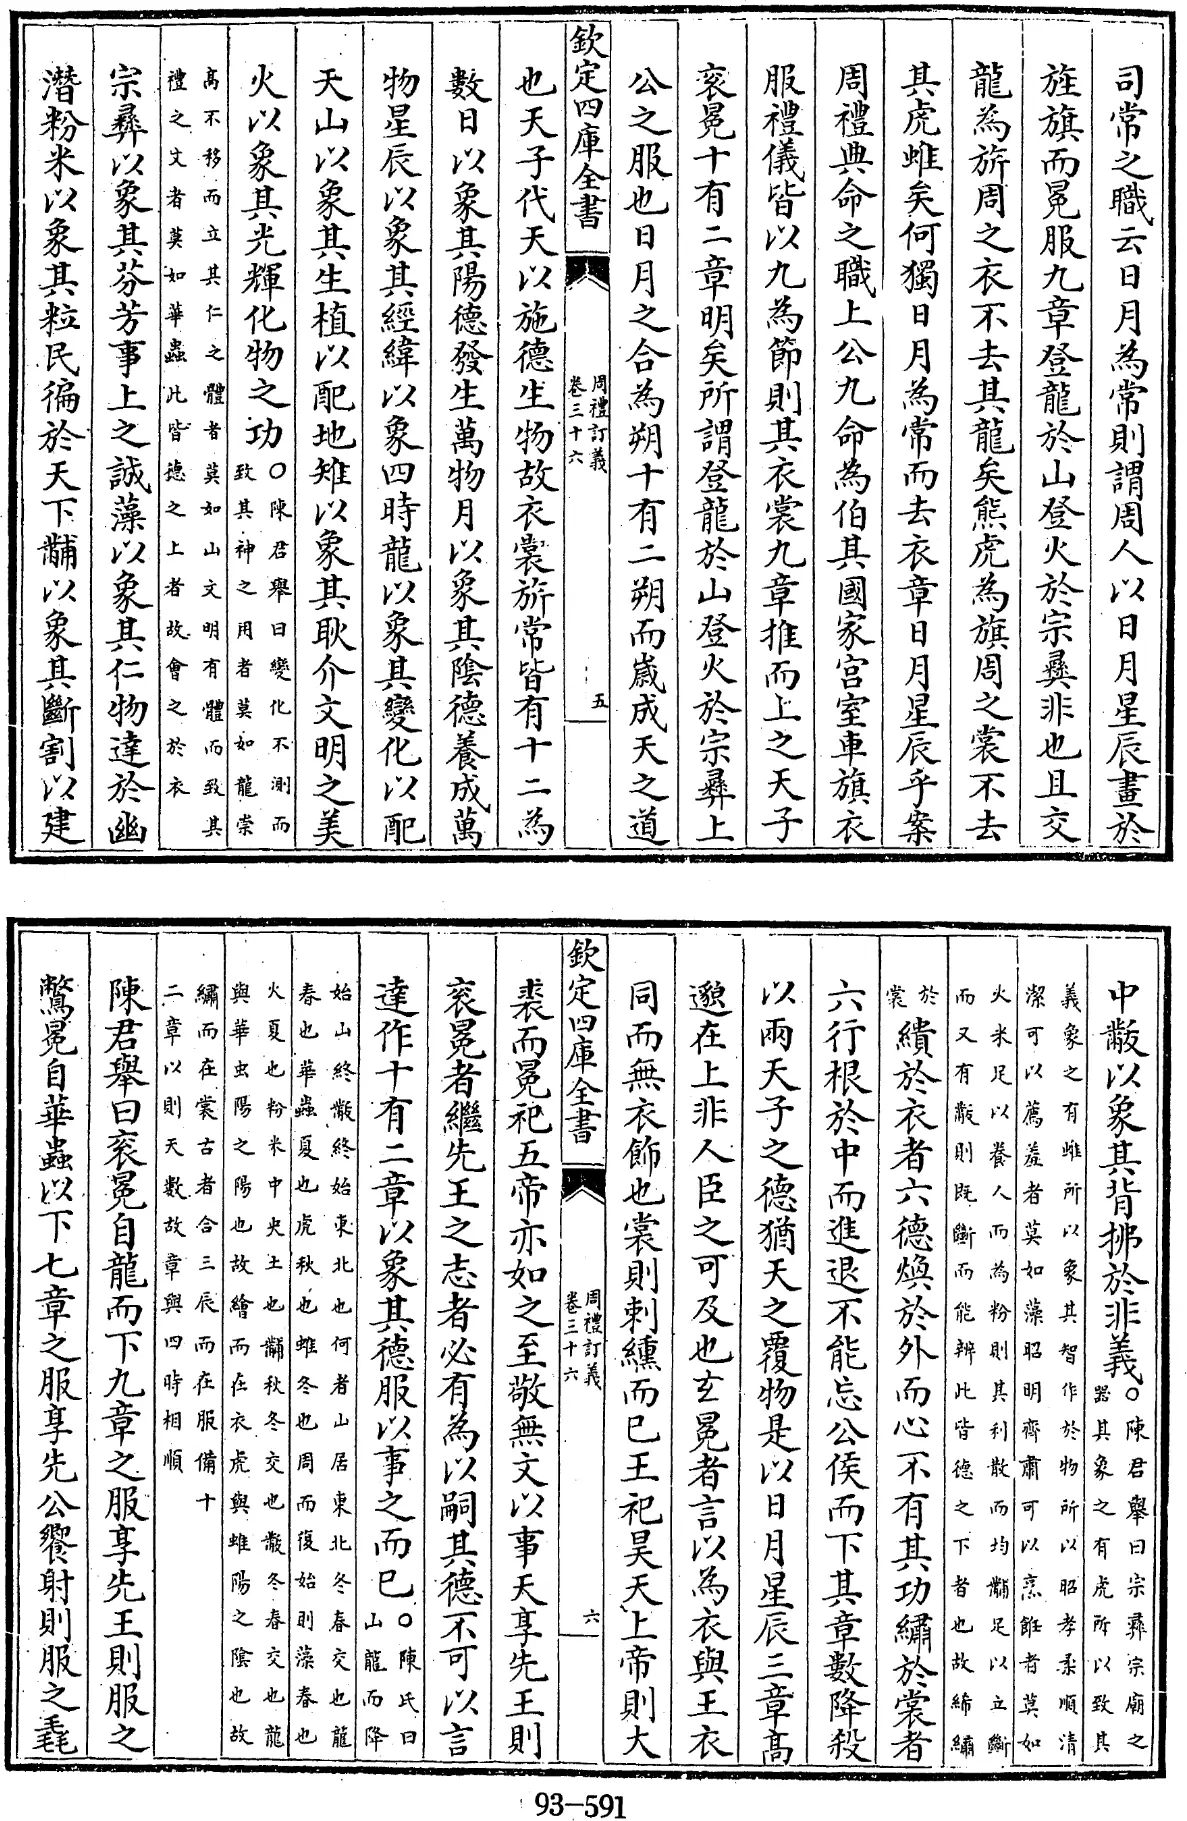 司常之職云日月為常則謂周人以日月星辰畫於
旌旗而冕服九章登龍於山登火於宗彝非也且交
龍為旂周之衣不去其龍矣熊虎為旗周之裳不去
其虎蜼矣何獨日月為常而去衣章日月星辰乎案
周禮典命之職上公九命為伯其國家宫室車旗衣
服禮儀皆以九為節則其衣裳九章推而上之天子
衮冕十有二章明矣所謂登龍於山登火於宗彝上
公之服也日月之合為朔十有二朔而嵗成天之道
欽定四庫全書
周禮訂義
卷三十六
五
也天子代天以施德生物故衣裳旂常皆有十二為
數日以象其陽德發生萬物月以象其陰德養成萬
物星辰以象其經緯以象四時龍以象其變化以配
天山以象其生植以配地雉以象其耿介文明之美
火以象其光輝化物之功○陳君舉曰變化不測而
致其神之用者莫如龍崇
高不移而立其仁之體者莫如山文明有體而致其
禮之文者莫如華蟲此皆徳之上者故會之於衣
宗彝以象其芬芳事上之誠藻以象其仁物達於幽
潛粉米以象其粒民徧於天下黼以象其斷割以建
中黻以象其背拂於非義○陳君舉曰宗彝宗廟之
器其象之有虎所以致其
義象之有蜼所以象其智作於物所以昭孝柔順清
潔可以薦羞者莫如藻昭明齊肅可以烹飪者莫如
火米足以養人而為粉則其利散而均黼足以立斷
而又有黻則既斷而能辨此皆德之下者也故絺繡
於
裳繢於衣者六德煥於外而心不有其功繡於裳者
六行根於中而進退不能忘公侯而下其章數降殺
以兩天子之德猶天之覆物是以日月星辰三章高
邈在上非人臣之可及也玄冕者言以為衣與王衣
同而無衣飾也裳則刺纁而已王祀昊天上帝則大
欽定四庫全書
周禮訂義
卷三十六
六
裘而冕祀五帝亦如之至敬無文以事天享先王則
衮冕者繼先王之志者必有為以嗣其德不可以言
達作十有二章以象其德服以事之而已○陳氏曰
山龍而降
始山終黻終始東北也何者山居東北冬春交也龍
春也華蟲夏也虎秋也蜼冬也周而復始則藻春也
火夏也粉米中央土也黼秋冬交也黻冬春交也龍
與華虫陽之陽也故繪而在衣虎與蜼陽之陰也故
繡而在裳古者合三辰而在服備十
二章以則天數故章與四時相順
陳君舉曰衮冕自龍而下九章之服享先王則服之
鷩冕自華蟲以下七章之服享先公饗射則服之毳
93-591